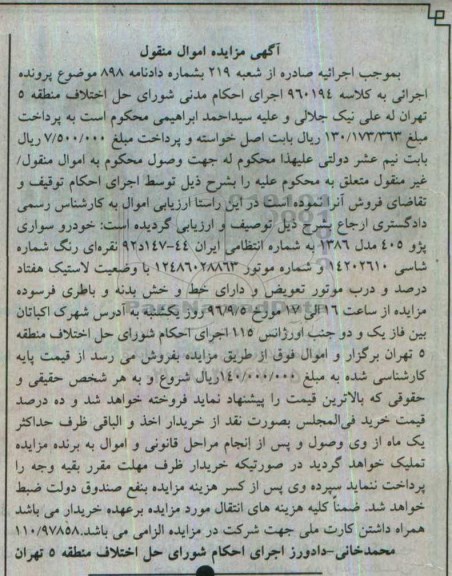 آگهی مزایده اموال منقول
بموجب اجرائیه صادره از شعبه ۲۱۹ بشماره دادنامه ۸۹۸ موضوع پرونده
اجرائی به کلاسه ۹۶۰۱۹۴ اجرای احکام مدنی شورای حل اختلاف منطقه ۵
تهران له علی نیک جلالی و علیه سیداحمد ابراهیمی محکوم است به پرداخت
مبلغ ۱۳۰/۱۷۳/۳۶۳ ریال بابت اصل خواسته و پرداخت مبلغ ۷/۵۰۰/۰۰۰ ریال
بابت نیم عشر دولتی علیهذا محکوم له جهت وصول محکوم به اموال منقول/
غیر منقول متعلق به محکوم علیه را بشرح ذیل توسط اجرای احکام توقیف و
تقاضای فروش آنرا نموده است در این راستا ارزیابی اموال به کارشناس رسمی
دادگستری ارجاع بشرح ذیل توصیف و ارزیابی گردیده است: خودرو سواری
پژو ۴۰۵ مدل ۱۳۸۶ به شماره انتظامی ایران ۴۴-۱۴۷د۹۲ نقره‌ای رنگ شماره
شاسی ۱۴۲۰۲۶۱۰ و شماره موتور ۱۲۴۸۶۰۲۸۸۶۳ با وضعیت لاستیک هفتاد
درصد و درب موتور تعویض و دارای خط و خش بدنه و باطری فرسوده
مزایده از ساعت ۱۶ الی ۱۷ مورخ ۹۶/۹/۵ روز یکشنبه به آدرس شهرک اکباتان
بین فاز یک و دو جنب اورژانس ۱۱۵ اجرای احکام شورای حل اختلاف منطقه
۵ تهران برگزار و اموال فوق از طریق مزایده بفروش می رسد از قیمت پایه
کارشناسی شده به مبلغ ۱۴۰/۰۰۰/۰۰۰ریال شروع و به هر شخص حقیقی و
حقوقی که بالاترین قیمت را پیشنهاد نماید فروخته خواهد شد و ده درصد
قیمت خرید فی‌المجلس بصورت نقد از خریدار اخذ و الباقی ظرف حداکثر
یک ماه از وی وصول و پس از انجام مراحل قانونی و اموال به برنده مزایده
تملیک خواهد گردید در صورتیکه خریدار ظرف مهلت مقرر بقیه وجه را
پرداخت ننماید سپرده وی پس از کسر هزینه مزایده بنفع صندوق دولت ضبط
خواهد شد. ضمناً کلیه هزینه های انتقال مورد مزایده برعهده خریدار می باشد
همراه داشتن کارت ملی جهت شرکت در مزایده الزامی می باشد.۱۱۰/۹۷۸۵۸
محمدخانی-دادورز اجرای احکام شورای حل اختلاف منطقه ۵ تهران